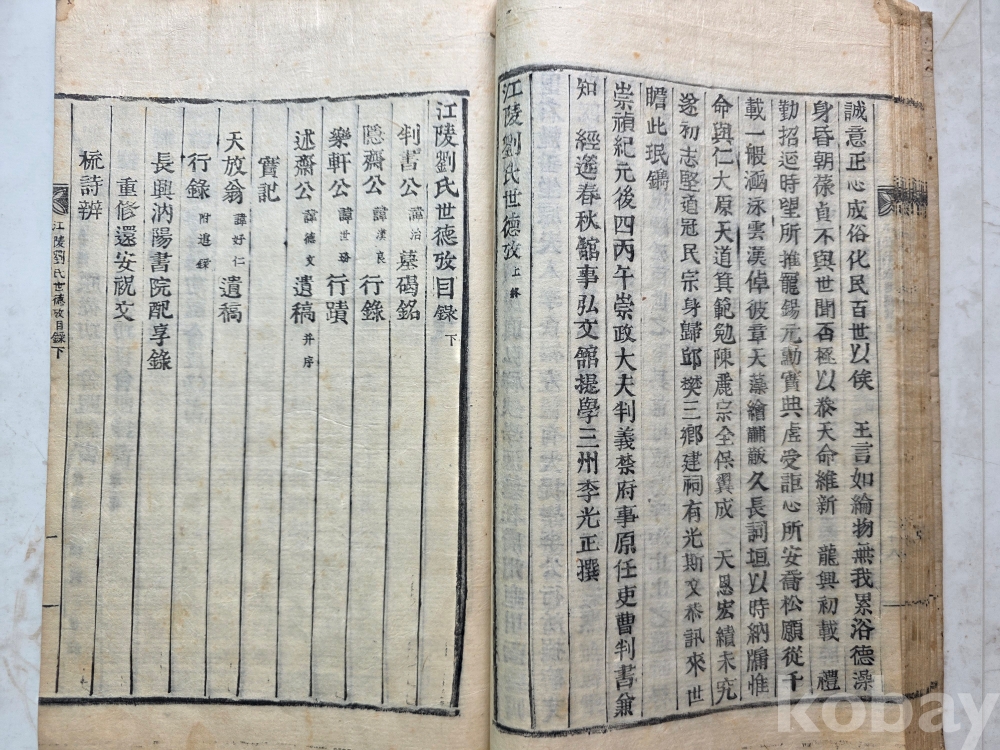 誠意正心成俗化民百世以俟 王言如綸物無我累浴德澡
身昏朝葆貞不與世聞否極以泰天命維新 龍興初載 禮
勤招迨時望所推寵錫元勳寶典虛受詎心所安喬松願從千
載一般涵泳雲漢倬彼章天藻繪黼黻久長詞垣以時納牖惟
命與仁大原天道箕範勉陳麗宗全保翼成 天恩宏績未究
遂初志堅道冠民宗身歸邱樊三鄉建祠有光斯文恭訊來世
瞻此珉鐫
崇禎紀元後四丙午崇政大夫判義禁府事原任吏曹判書兼
知 經筵春秋館事弘文館提學三州李光正撰
江陵劉氏世德攷 上終
江陵劉氏世德攷目錄 下
判書公 諱治 墓碣銘
隱齋公 諱漢良 行錄
樂軒公 諱世 行蹟
述齋公 諱德文 遺稿 并序
實記
天放翁 諱好仁 遺稿
行錄 附追錄
長興汭陽書院配享錄
重修還安祝文
梳詩辨
江陵劉氏世德攷目錄 下
kobay